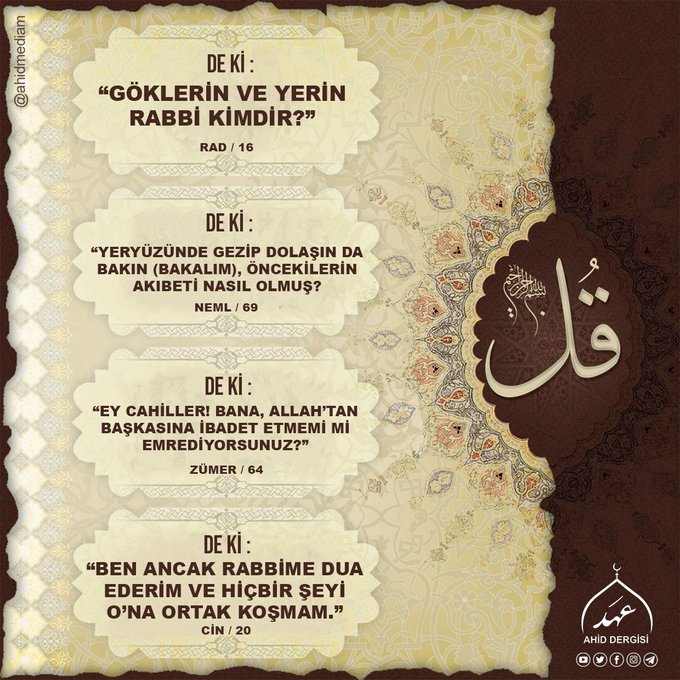 @ahidmediam
DE Kİ :
“GÖKLERİN VE YERİN
RABBİ KİMDİR?”
RAD / 16
DE Kİ :
“YERYÜZÜNDE GEZİP DOLAŞIN DA
BAKIN (BAKALIM), ÖNCEKİLERİN
AKIBETİ NASIL OLMUŞ?
NEML / 69
DE Kİ :
“EY CAHİLLER! BANA, ALLAH’TAN
BAŞKASINA İBADET ETMEMİ Mİ
EMREDİYORSUNUZ?”
ZÜMER / 64
DE Kİ :
“BEN ANCAK RABBİME DUA
EDERİM VE HİÇBİR ŞEYİ
O’NA ORTAK KOŞMAM.”
CİN / 20
بسم الله الرحمن الرحيم
قُل
عهد
AHİD DERGİSİ